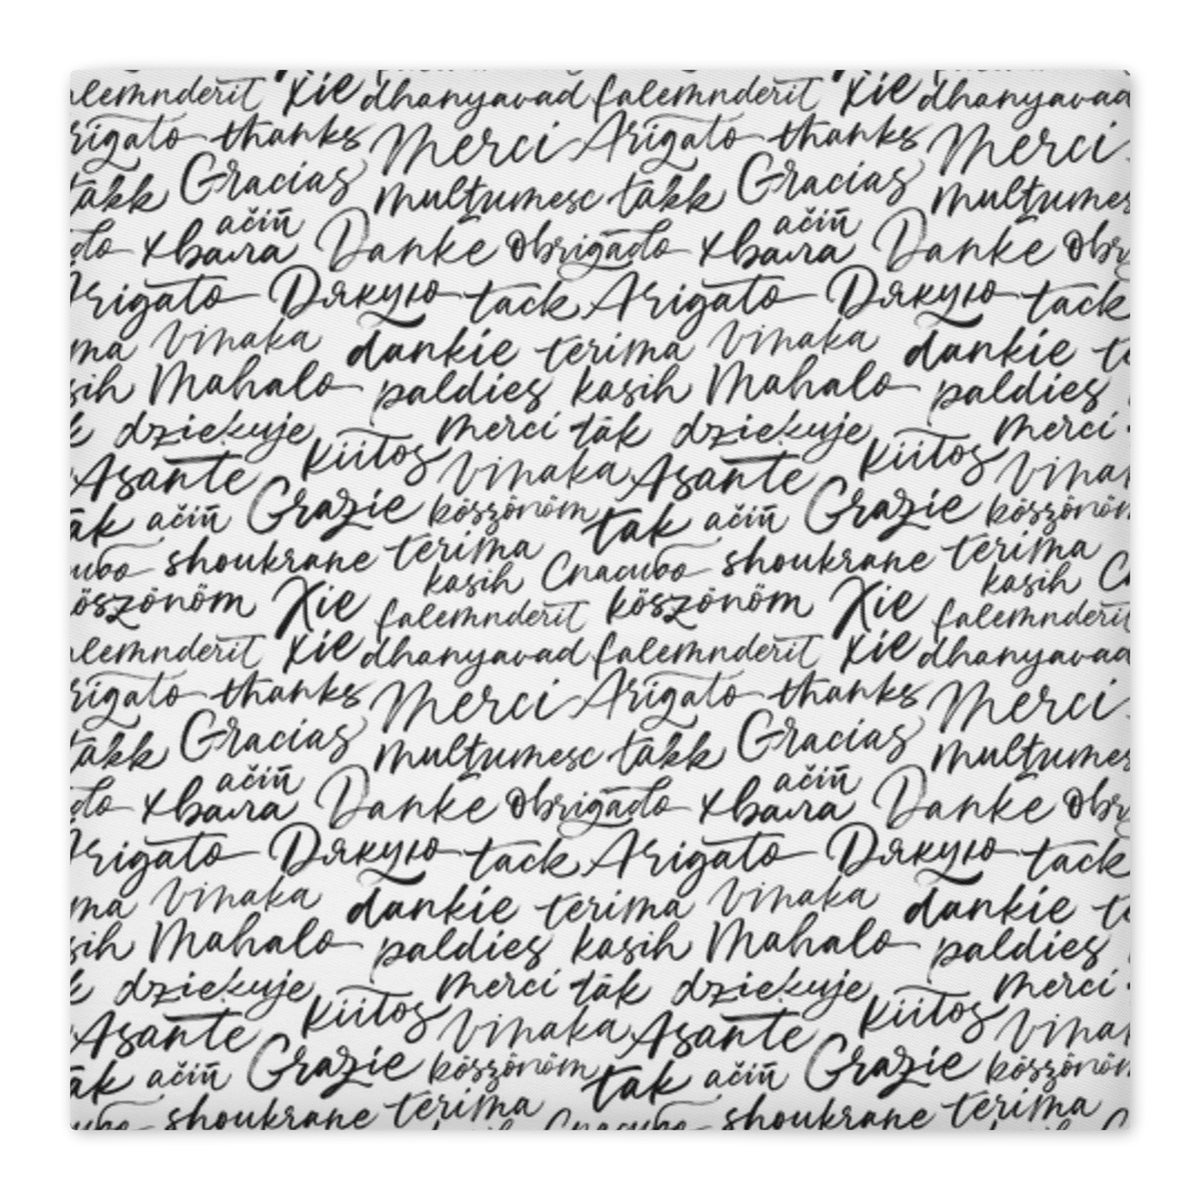 falemnderit Xie dhanyavad falemnderit Xie dhanyavad
Arigato thanks Merci Arigato thanks Merci
takk Gracias multumesc takk Gracias multumesc
ačiū ačiū
хвала Danke Obrigado хвала Danke
Arigato Дякую tack Arigato Дякую tack
vinaka dankie terima vinaka dankie
kasih Mahalo paldies kasih Mahalo paldies
dziekuje merci tak dziekuje merci
Asante kiitos vinaka Asante kiitos vinaka
tak ačiū Grazie köszönöm tak ačiū Grazie köszönöm
shoukrane terima Спасибо shoukrane terima
kasih kasih
köszönöm Xie falemnderit köszönöm Xie falemnderit
falemnderit Xie dhanyavad falemnderit Xie dhanyavad
Arigato thanks Merci Arigato thanks Merci
takk Gracias multumesc takk Gracias multumesc
ačiū ačiū
хвала Danke Obrigado хвала Danke
Arigato Дякую tack Arigato Дякую tack
vinaka dankie terima vinaka dankie
kasih Mahalo paldies kasih Mahalo paldies
dziekuje merci tak dziekuje merci
Asante kiitos vinaka Asante kiitos vinaka
tak ačiū Grazie köszönöm tak ačiū Grazie köszönöm
shoukrane terima Спасибо shoukrane terima